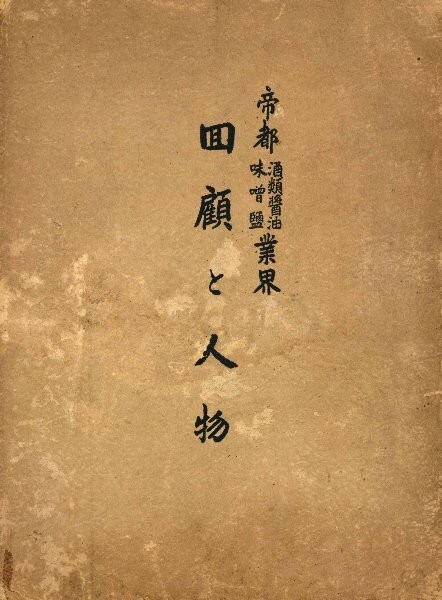 帝都酒類醤油味噌鹽業界
回顧と人物